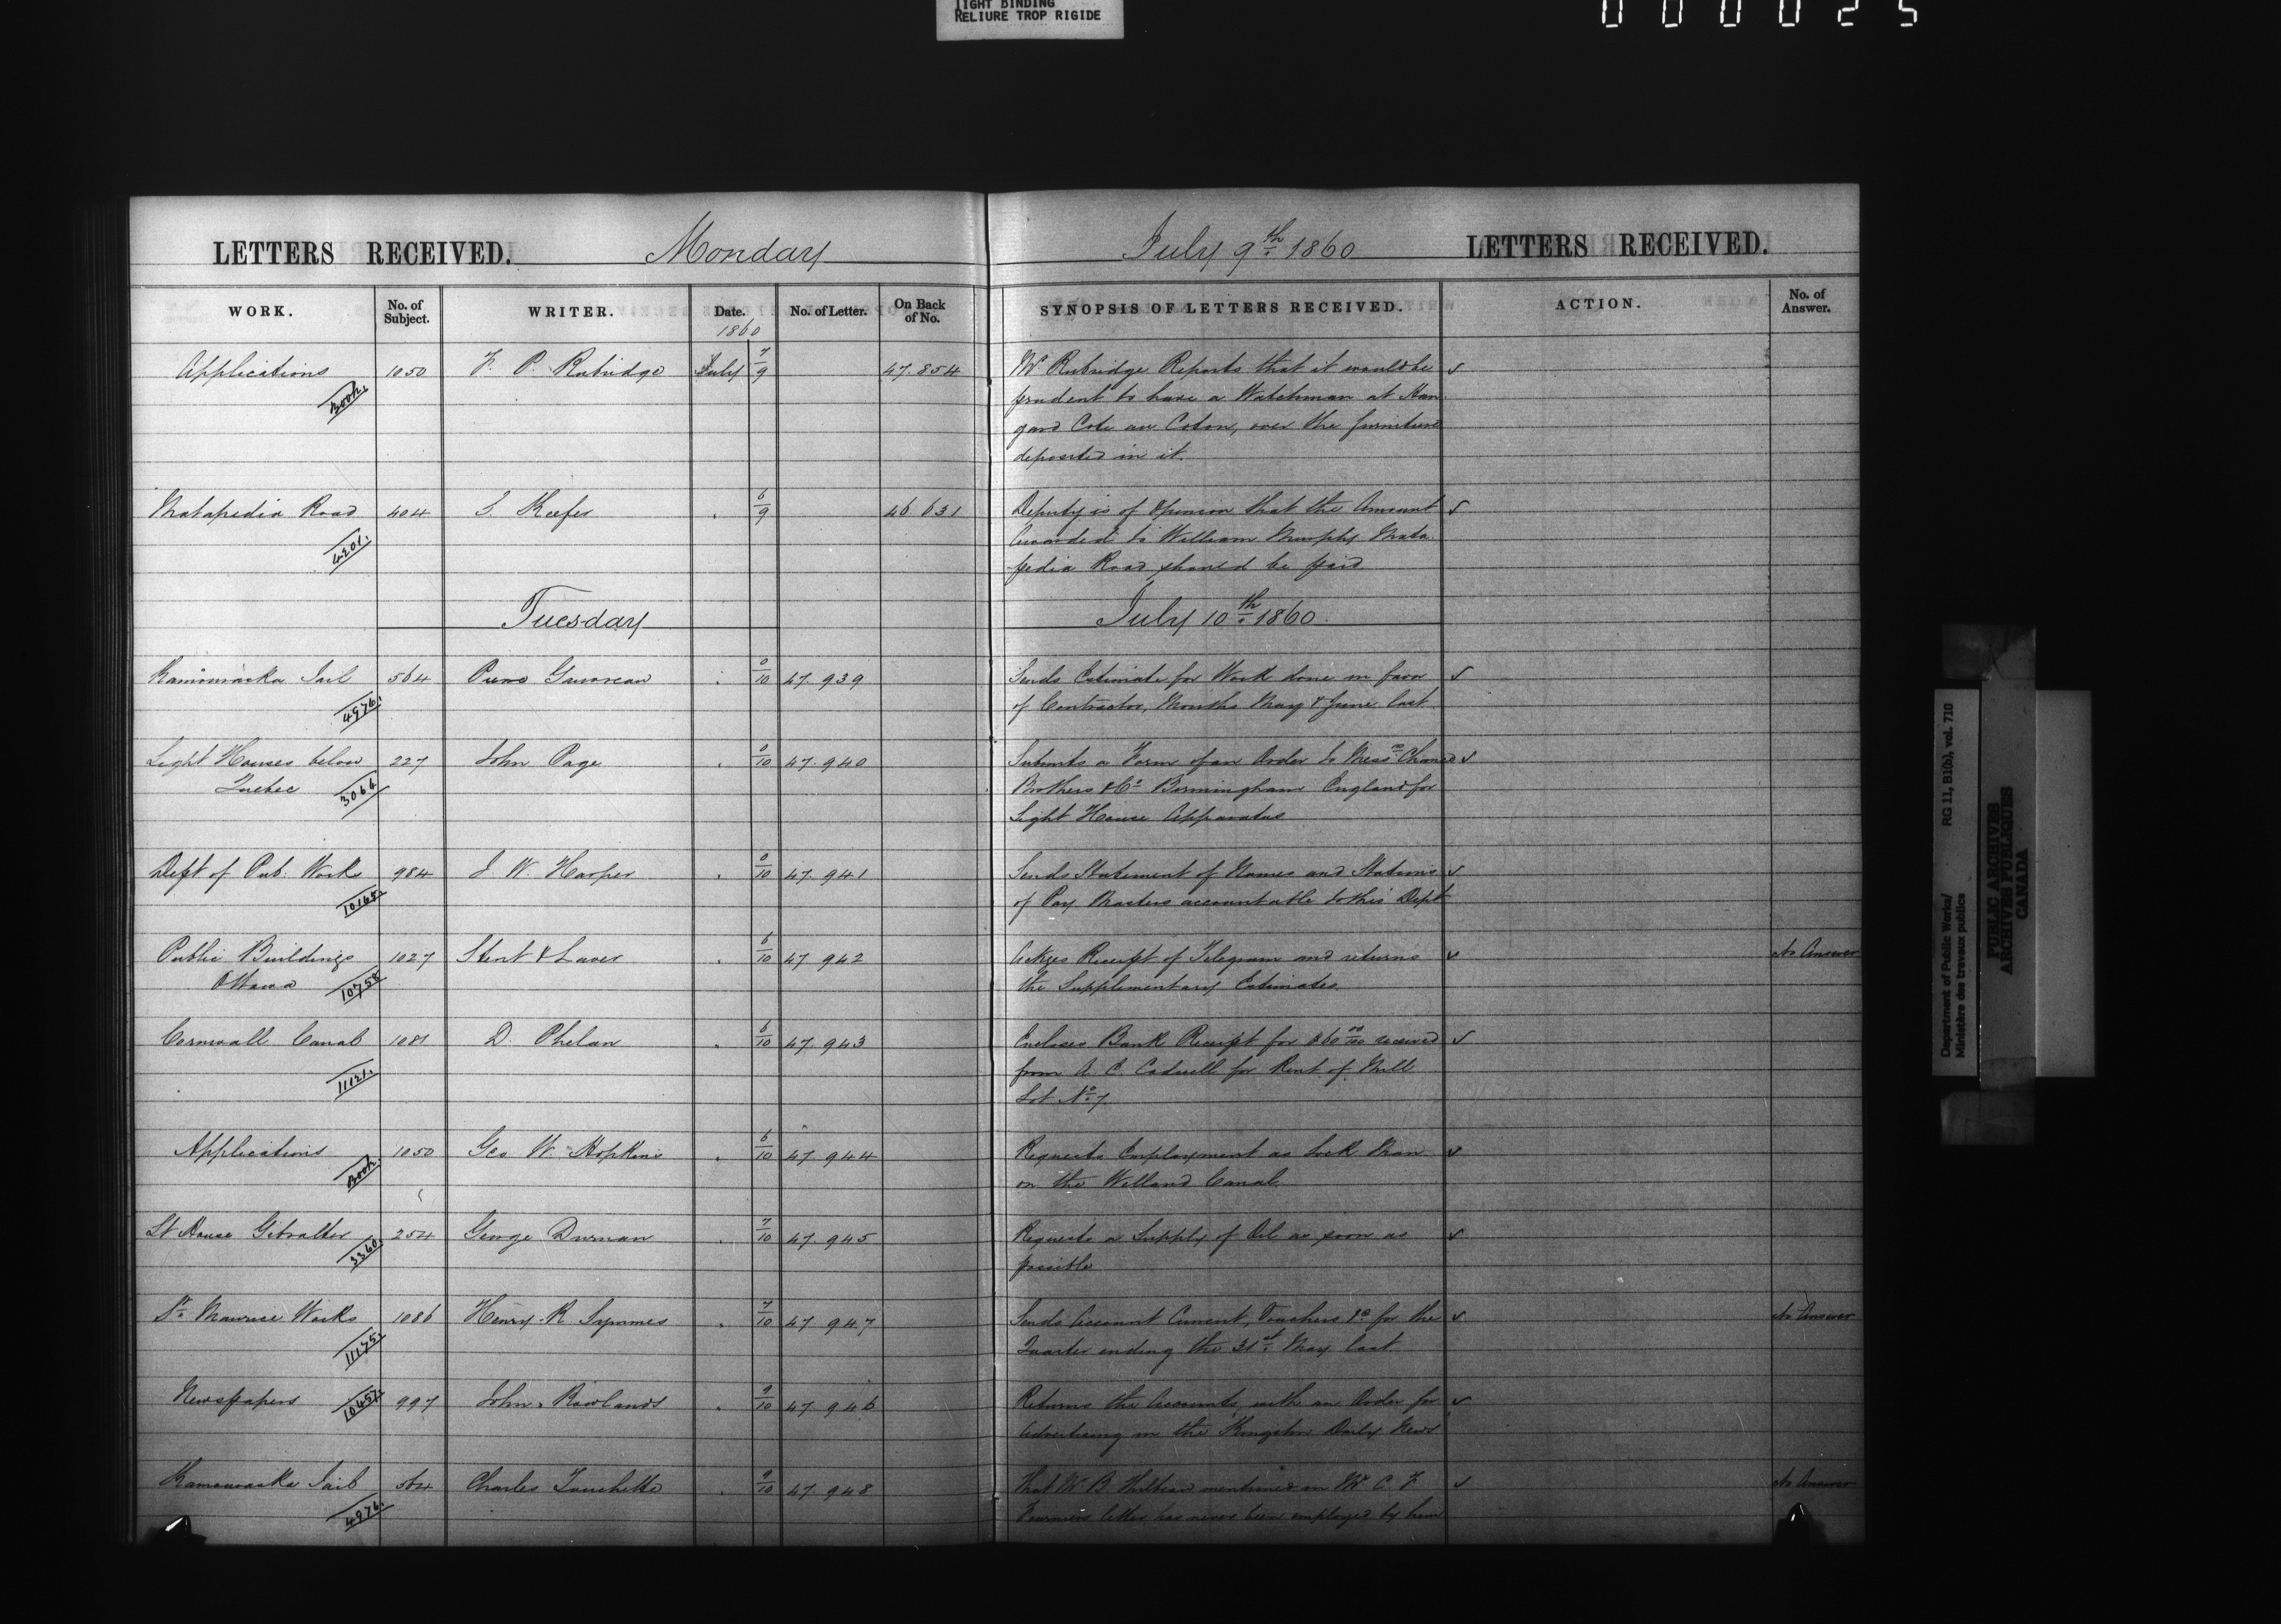 TIGHT BINDING
RELIURE TROP RIGIDE
000025
LETTERS RECEIVED. Monday July 9th 1860 LETTERS RECEIVED.
WORK. No. of Subject. WRITER. Date. 1860 No. of Letter. On Back of No. SYNOPSIS OF LETTERS RECEIVED. ACTION. No. of Answer.
Applications 1050 F. P. Rubidge July 7/9 47.854 Mr Rubridge Reports that it would be ✓
Book. prudent to have a Watchman at Han
gard Coté au Coton, over the furniture
deposited in it.
Matapedia Road 404 S. Keefer . 6/9 46.631 Deputy is of Opinion that the Amount ✓
4201. Awarded to William Murphy Mata
pedia Road, should be paid
Tuesday July 10th 1860
Kamouraska Jail 564 . 0/10 47.939 Sends Estimate for Work done in favor ✓
4976. of Contractor, Months May & June last
Light Houses below 227 John Page . 0/10 47.940 Submits a Form of an Order to Messrs Chance ✓
Quebec 3066 Brothers & Co Birmingham England for
Light House Apparatus
Dept of Pub. Works 984 J. W. Harper . 0/10 47.941 Sends Statement of Names and Stations ✓
10165. of Pay Masters accountable to this Dept
Public Buildings 1027 Stent & Laver . 6/10 47.942 Ackges Receipt of Telegram and returns ✓ No Answer
Ottawa 10758 the Supplementary Estimates.
Cornwall Canal 1081 D. Phelan . 6/10 47.943 Encloses Bank Receipt for $60 00/100 received ✓
11121. from A. C. Cadwell for Rent of Mill
Lot No 7
Applications 1050 Geo W. Hopkins . 6/10 47.944 Requests Employment as Lock Man ✓
Book. on the Welland Canal.
Lt House Gibralter 254 George Durnan . 7/10 47.945 Requests a Supply of Oil as soon as ✓
3360. possible
St. Maurice Works 1086 Henry R Symmes . 7/10 47.947 Sends Account Current, Vouchers &c for the ✓ No Answer
11175. Quarter ending the 31st May last
Newspapers 10457. 997 John Rowlands . 9/10 47.946 Returns the Accounts, with an Order for ✓
Advertising in the Kingston Daily News
Kamouraska Jail 564 Charles Touchette . 9/10 47.948 That Mr B. mentioned in Mr C. F. ✓ No Answer
4976. Fourniers letter has never been employed by him
Department of Public Works/ RG 11, B1(b), vol. 710
Ministère des travaux publics
PUBLIC ARCHIVES
ARCHIVES PUBLIQUES
CANADA